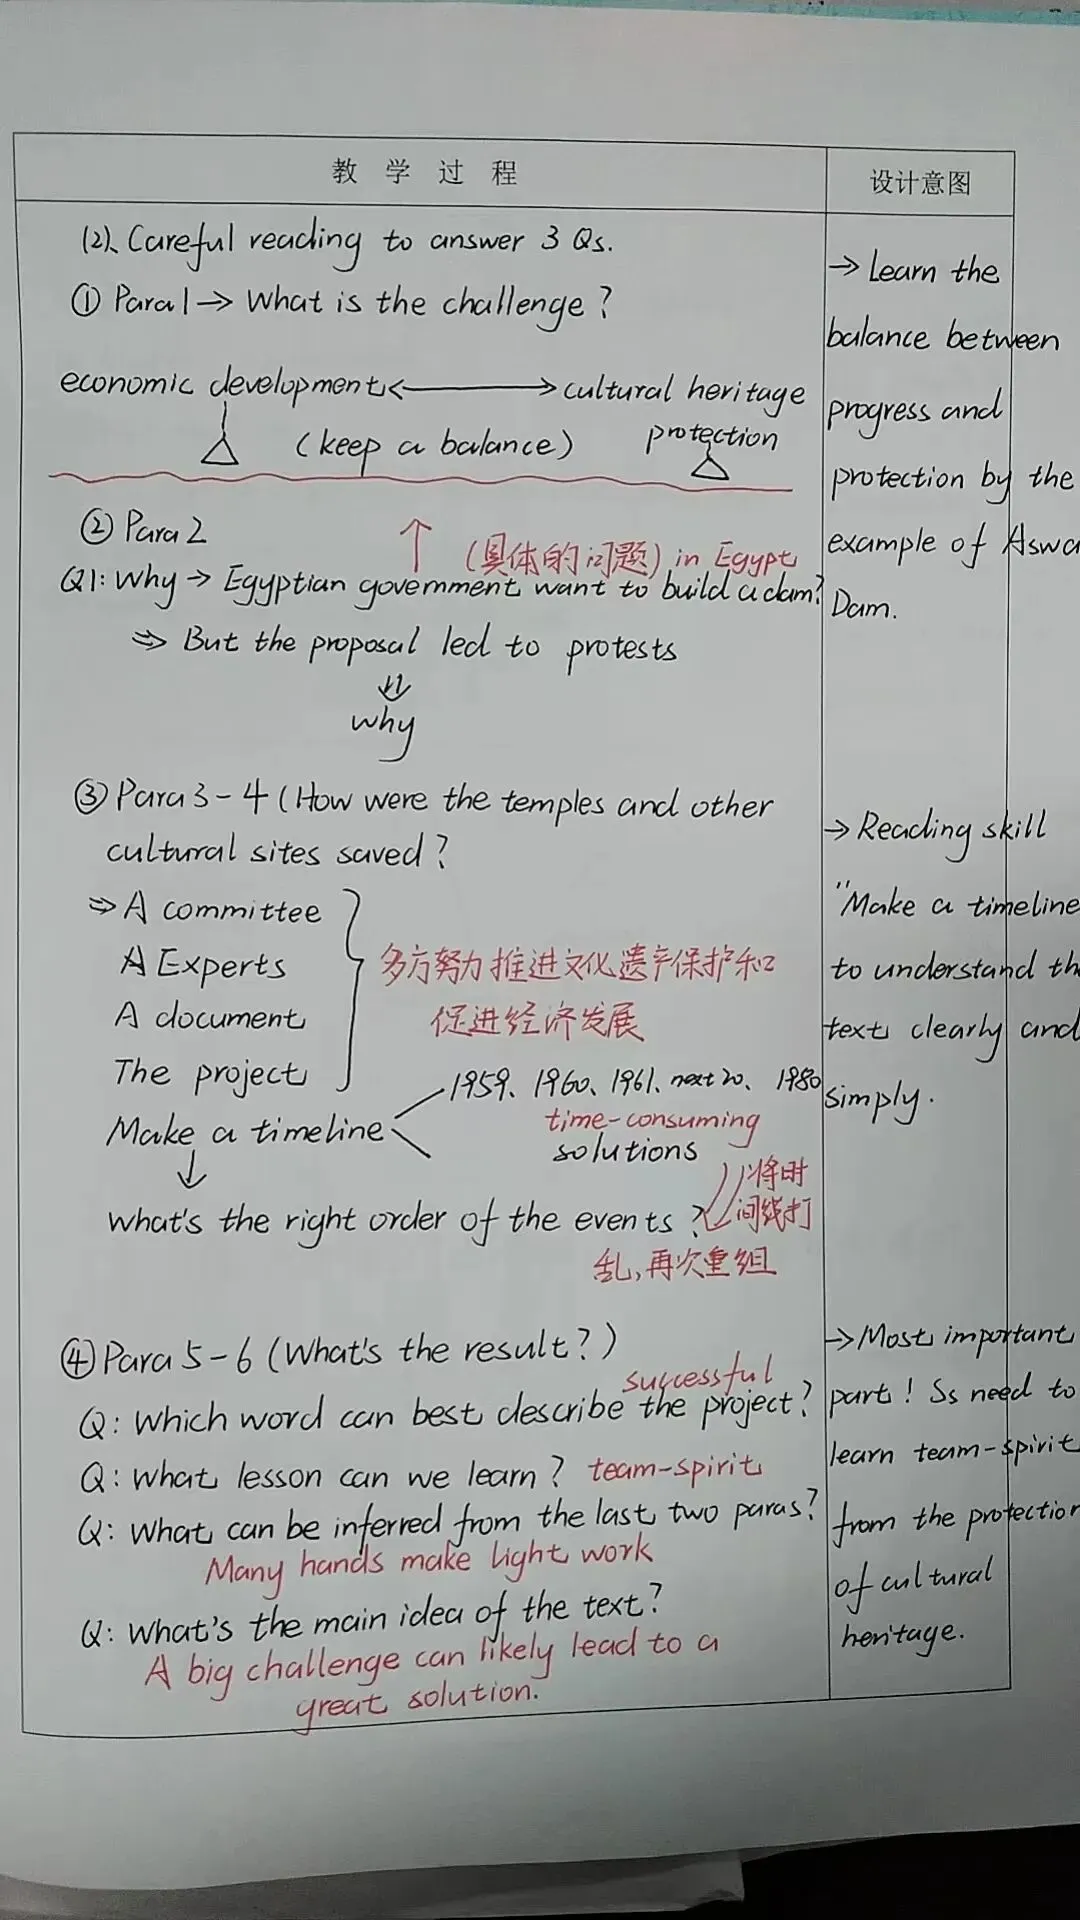 教 学 过 程
(2)、Careful reading to answer 3 Qs.
① Para1→ What is the challenge?
economic development ←→ cultural heritage
(keep a balance) protection
② Para 2
↑ (具体的问题) in Egypt
Q1: Why → Egyptian government want to build a dam?
⇒ But the proposal led to protests
⇓
why
③ Para 3-4 (How were the temples and other
cultural sites saved?
⇒ A committee
A Experts
A document
The project
多方努力推进文化遗产保护和
促进经济发展
Make a timeline
1959、1960、1961、next 20、1980
time-consuming
solutions
↓
What's the right order of the events?
将时
间线打
乱,再次重组
④ Para 5-6 (What's the result?)
successful
Q: Which word can best describe the project?
Q: What lesson can we learn? team-spirit
Q: What can be inferred from the last two paras?
Many hands make light work
Q: What's the main idea of the text?
A big challenge can likely lead to a
great solution.
设计意图
→ Learn the
balance between
progress and
protection by the
example of Aswa
Dam.
→ Reading skill
"Make a timeline
to understand th
text clearly and
simply.
→ Most important
part! Ss need to
learn team-spirit
from the protection
of cultural
heritage.